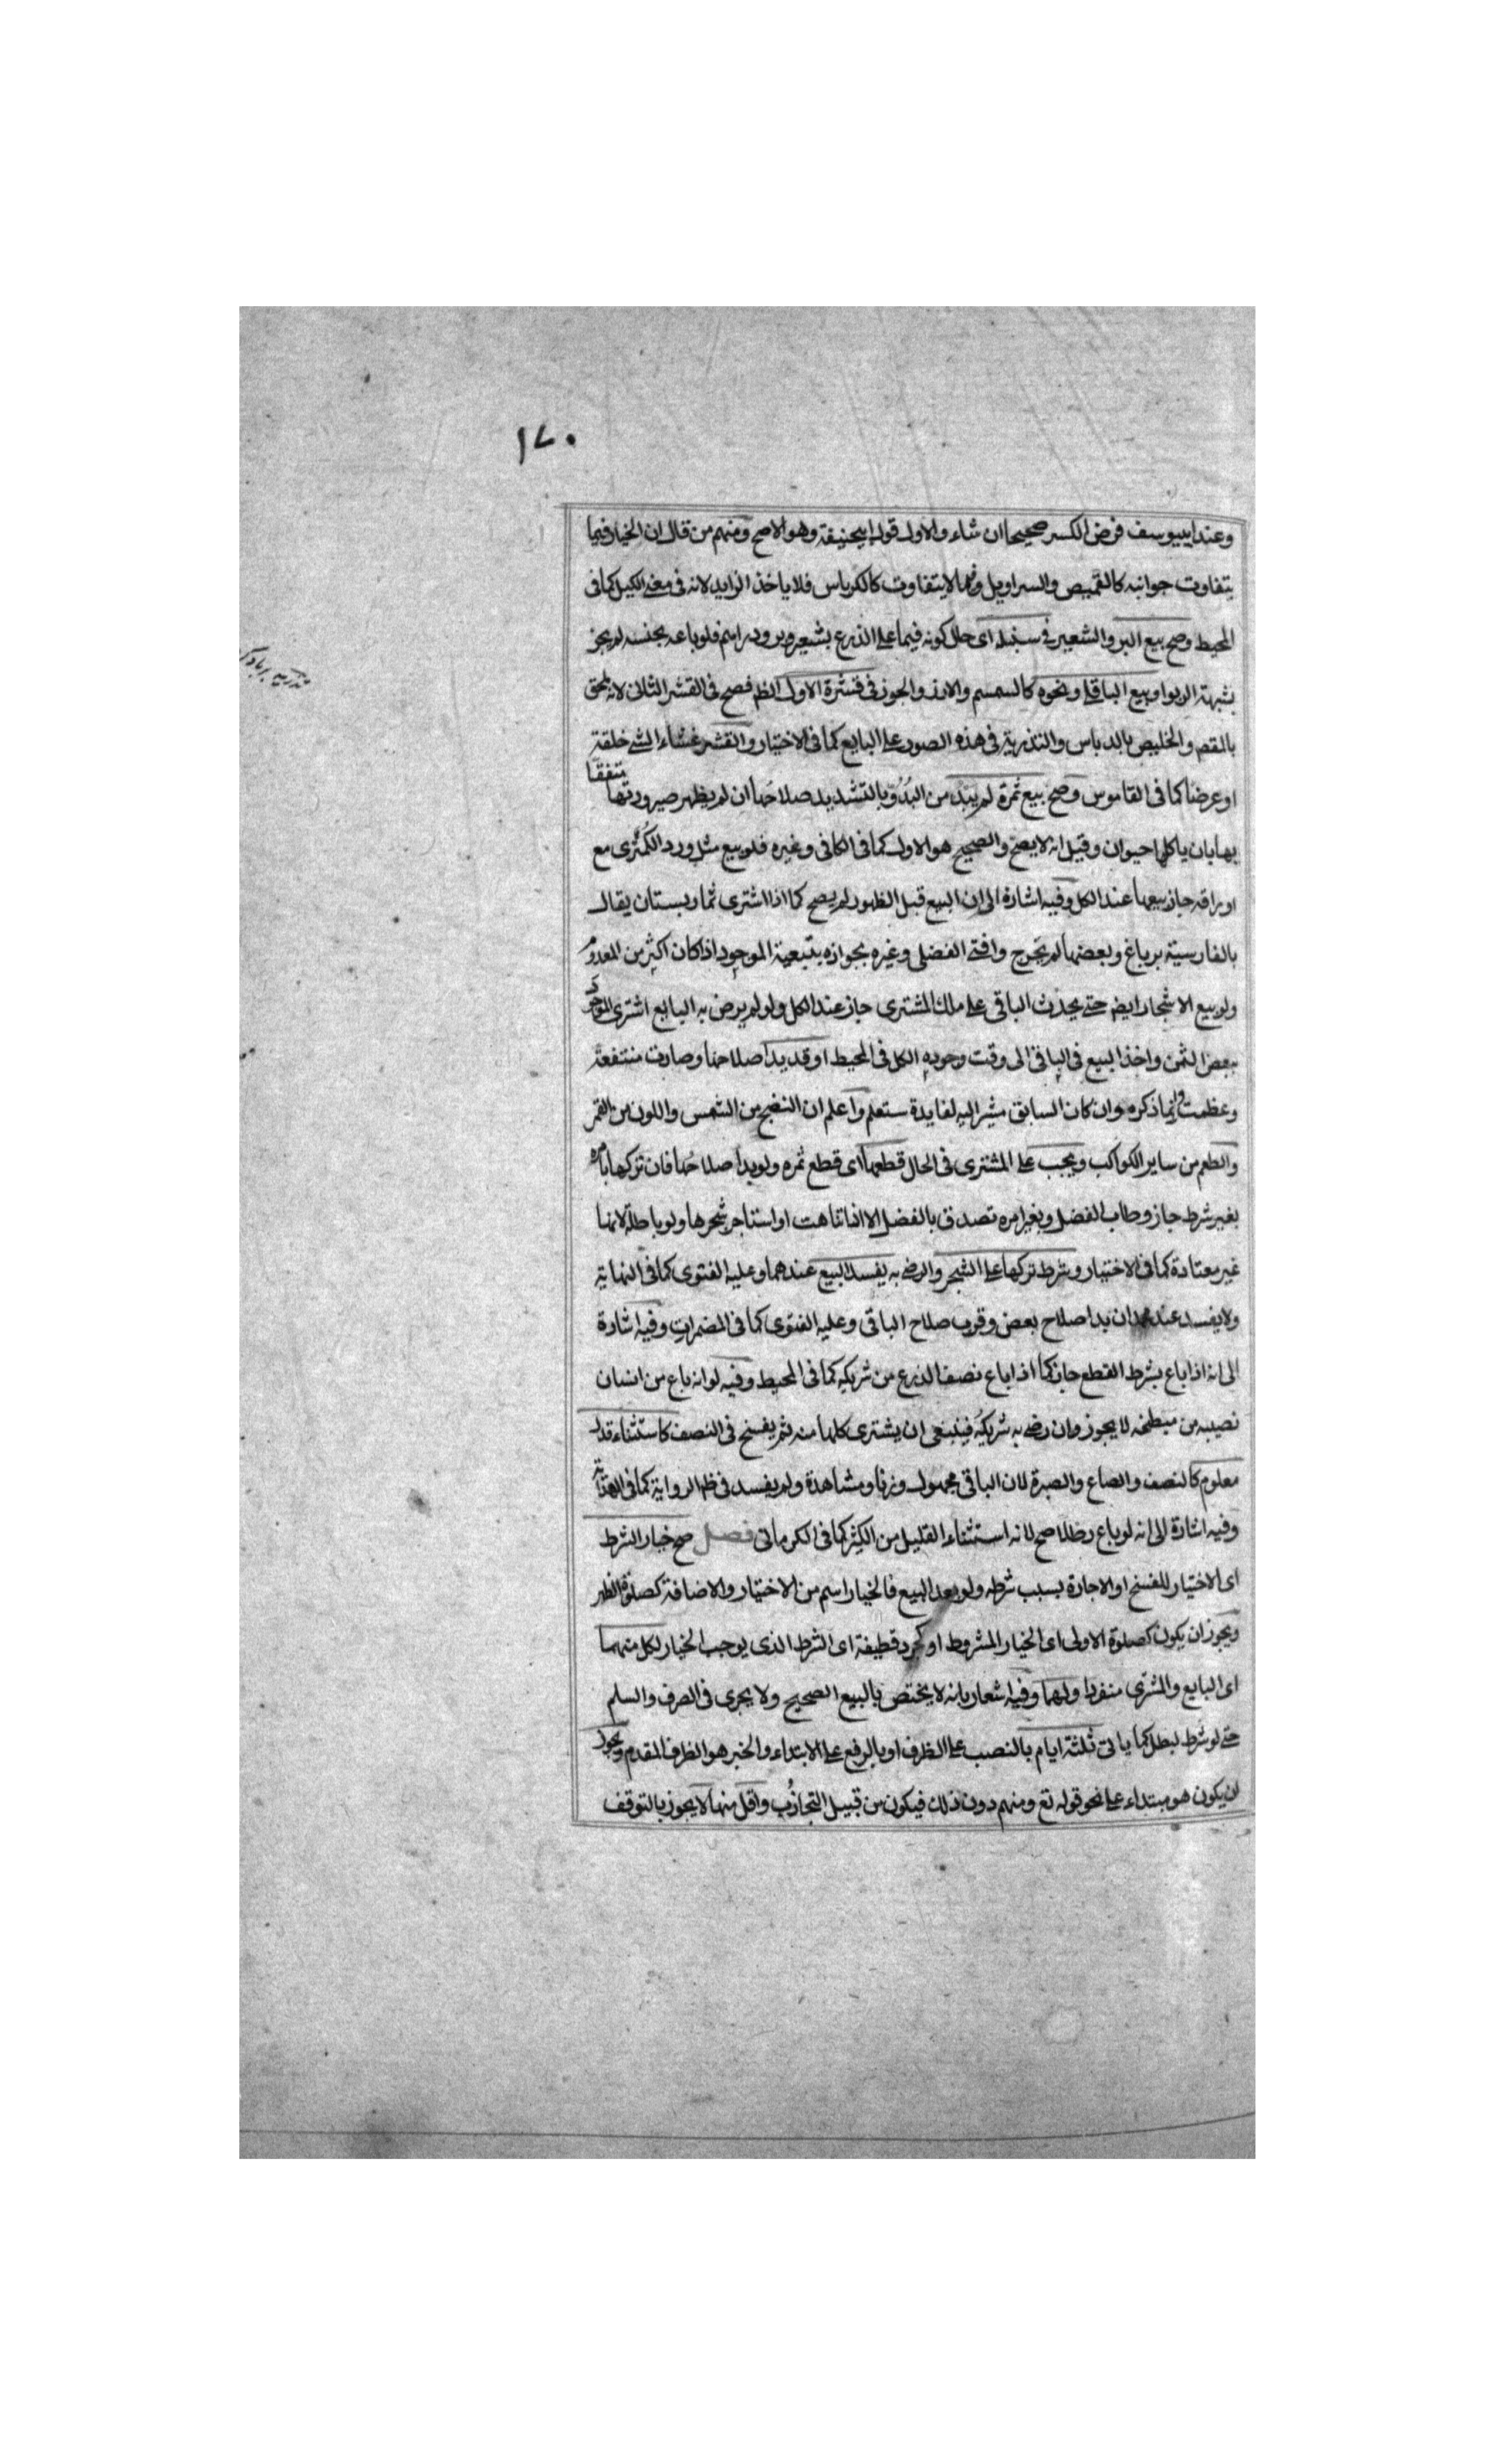 ١٧٠
وعند ابييوسف فرض الكسر صحيحا ان شاء والاول قول ابيحنيفة وهو الاصح ومنهم من قال ان الخيار فيما
يتفاوت جوانبه كالقميص والسراويل وفيما لا يتفاوت كالكرباس فلا ياخذ الزايد لانه في معنى الكيل كما في
المحيط وصح بيع البر والشعير في سنبله اى حال كونه فيما على الذرع بشعير وبر ودراهم فلو باعه بجنسه لم يجز
بشبهة الربوا وبيع الباقلى ونحوه كالسمسم والارز والجوز في قشرة الاول الظ فصح في القشر الثانى لانه يلحق
بالمقصود والخليص بالدباس والتذرية في هذه الصور على البايع كما في الاختيار والقشر غشاء الشئ خلقة
او عرضا كما في القاموس وصح بيع ثمرة لم يبد من البدو بالتشديد صلاحها ان لم يظهر صيرورتها منتفقا
بها بان ياكلها حيوان وقيل انه لا يصح والصحيح هو الاول كما في الكافى وغيره فلو بيع مثل ورد الكمثرى مع
اوراقه جاز بيعها عند الكل وفيه اشارة الى ان البيع قبل الظهور لم يصح كما اذا اشترى ثمار بستان يقال
بالفارسية برباغ وبعضها لم يخرج وافتى الفضلى وغيره بجوازه بتبعية الموجود اذا كان اكثر من المعدوم
ولو بيع الاشجار ايض حتى يحدث الباقى على ملك المشترى جاز عند الكل ولو لم يرض به البايع اشترى الموجود
ببعض الثمن واخذ البيع في الباقى الى وقت وجوده الكل في المحيط او قد بدا صلاحها وصارت منتفعة
وعظمت وانما ذكره وان كان السابق مشيرا اليه لفايدة ستعلم واعلم ان النضج من الشمس واللون من القمر
والطعم من ساير الكواكب ويجب على المشترى في الحال قطعها اى قطع ثمره ولو بدا صلاحها فان تركها بامره
بغير شرط جاز وطاب الفضل وبغير امره تصدق بالفضل الا اذا تناهت او استاجر شجرها ولو باطلة لانها
غير معتادة كما في الاختيار وشرط تركها على الشجر والرضى به يفسد البيع عندهما وعليه الفتوى كما في النهاية
ولا يفسد عند محمد ان بدا صلاح بعض وقرب صلاح الباقى وعليه الفتوى كما في المضمرات وفيه اشارة
الى انه اذا باع بشرط القطع جاز كما اذا باع نصف الزرع من شريكه كما في المحيط وفيه لو انه باع من انسان
نصيبه من مبطخه لا يجوز وان رضى به شريكه فينبغى ان يشترى كلها منه ثم يفسخ في النصف كاستثناء قدر
معلوم كالنصف والصاع والصبرة لان الباقى مجهول وزنا ومشاهدة ولم يفسد في ظ الرواية كما في الهداية
وفيه اشارة الى انه لو باع رطلا صح لانه استثناء القليل من الكثير كما في الكرمانى فصل صح خيار الشرط
اى الاختيار للفسخ او الاجازة بسبب شرطه ولو بعد البيع فالخيار اسم من الاختيار والاضافة كصلوة الظهر
ويجوز ان يكون كصلوة الاولى اى الخيار المشروط او كجرد قطيفة اى الشرط الذى يوجب الخيار لكل منهما
اى البايع والمشترى منفردا ولهما وفيه اشعار بانه لا يختص بالبيع الصحيح ولا يجرى في الصرف والسلم
حتى لو شرط لبطل كما ياتى ثلثة ايام بالنصب على الظرف او بالرفع على الابتداء والخبر هو الظرف المقدم ويجوز
ان يكون هو مبتداء على نحو قوله تع ومنهم دون ذلك فيكون من قبيل التجاذب واقل منها لا يجوز بالتوقف